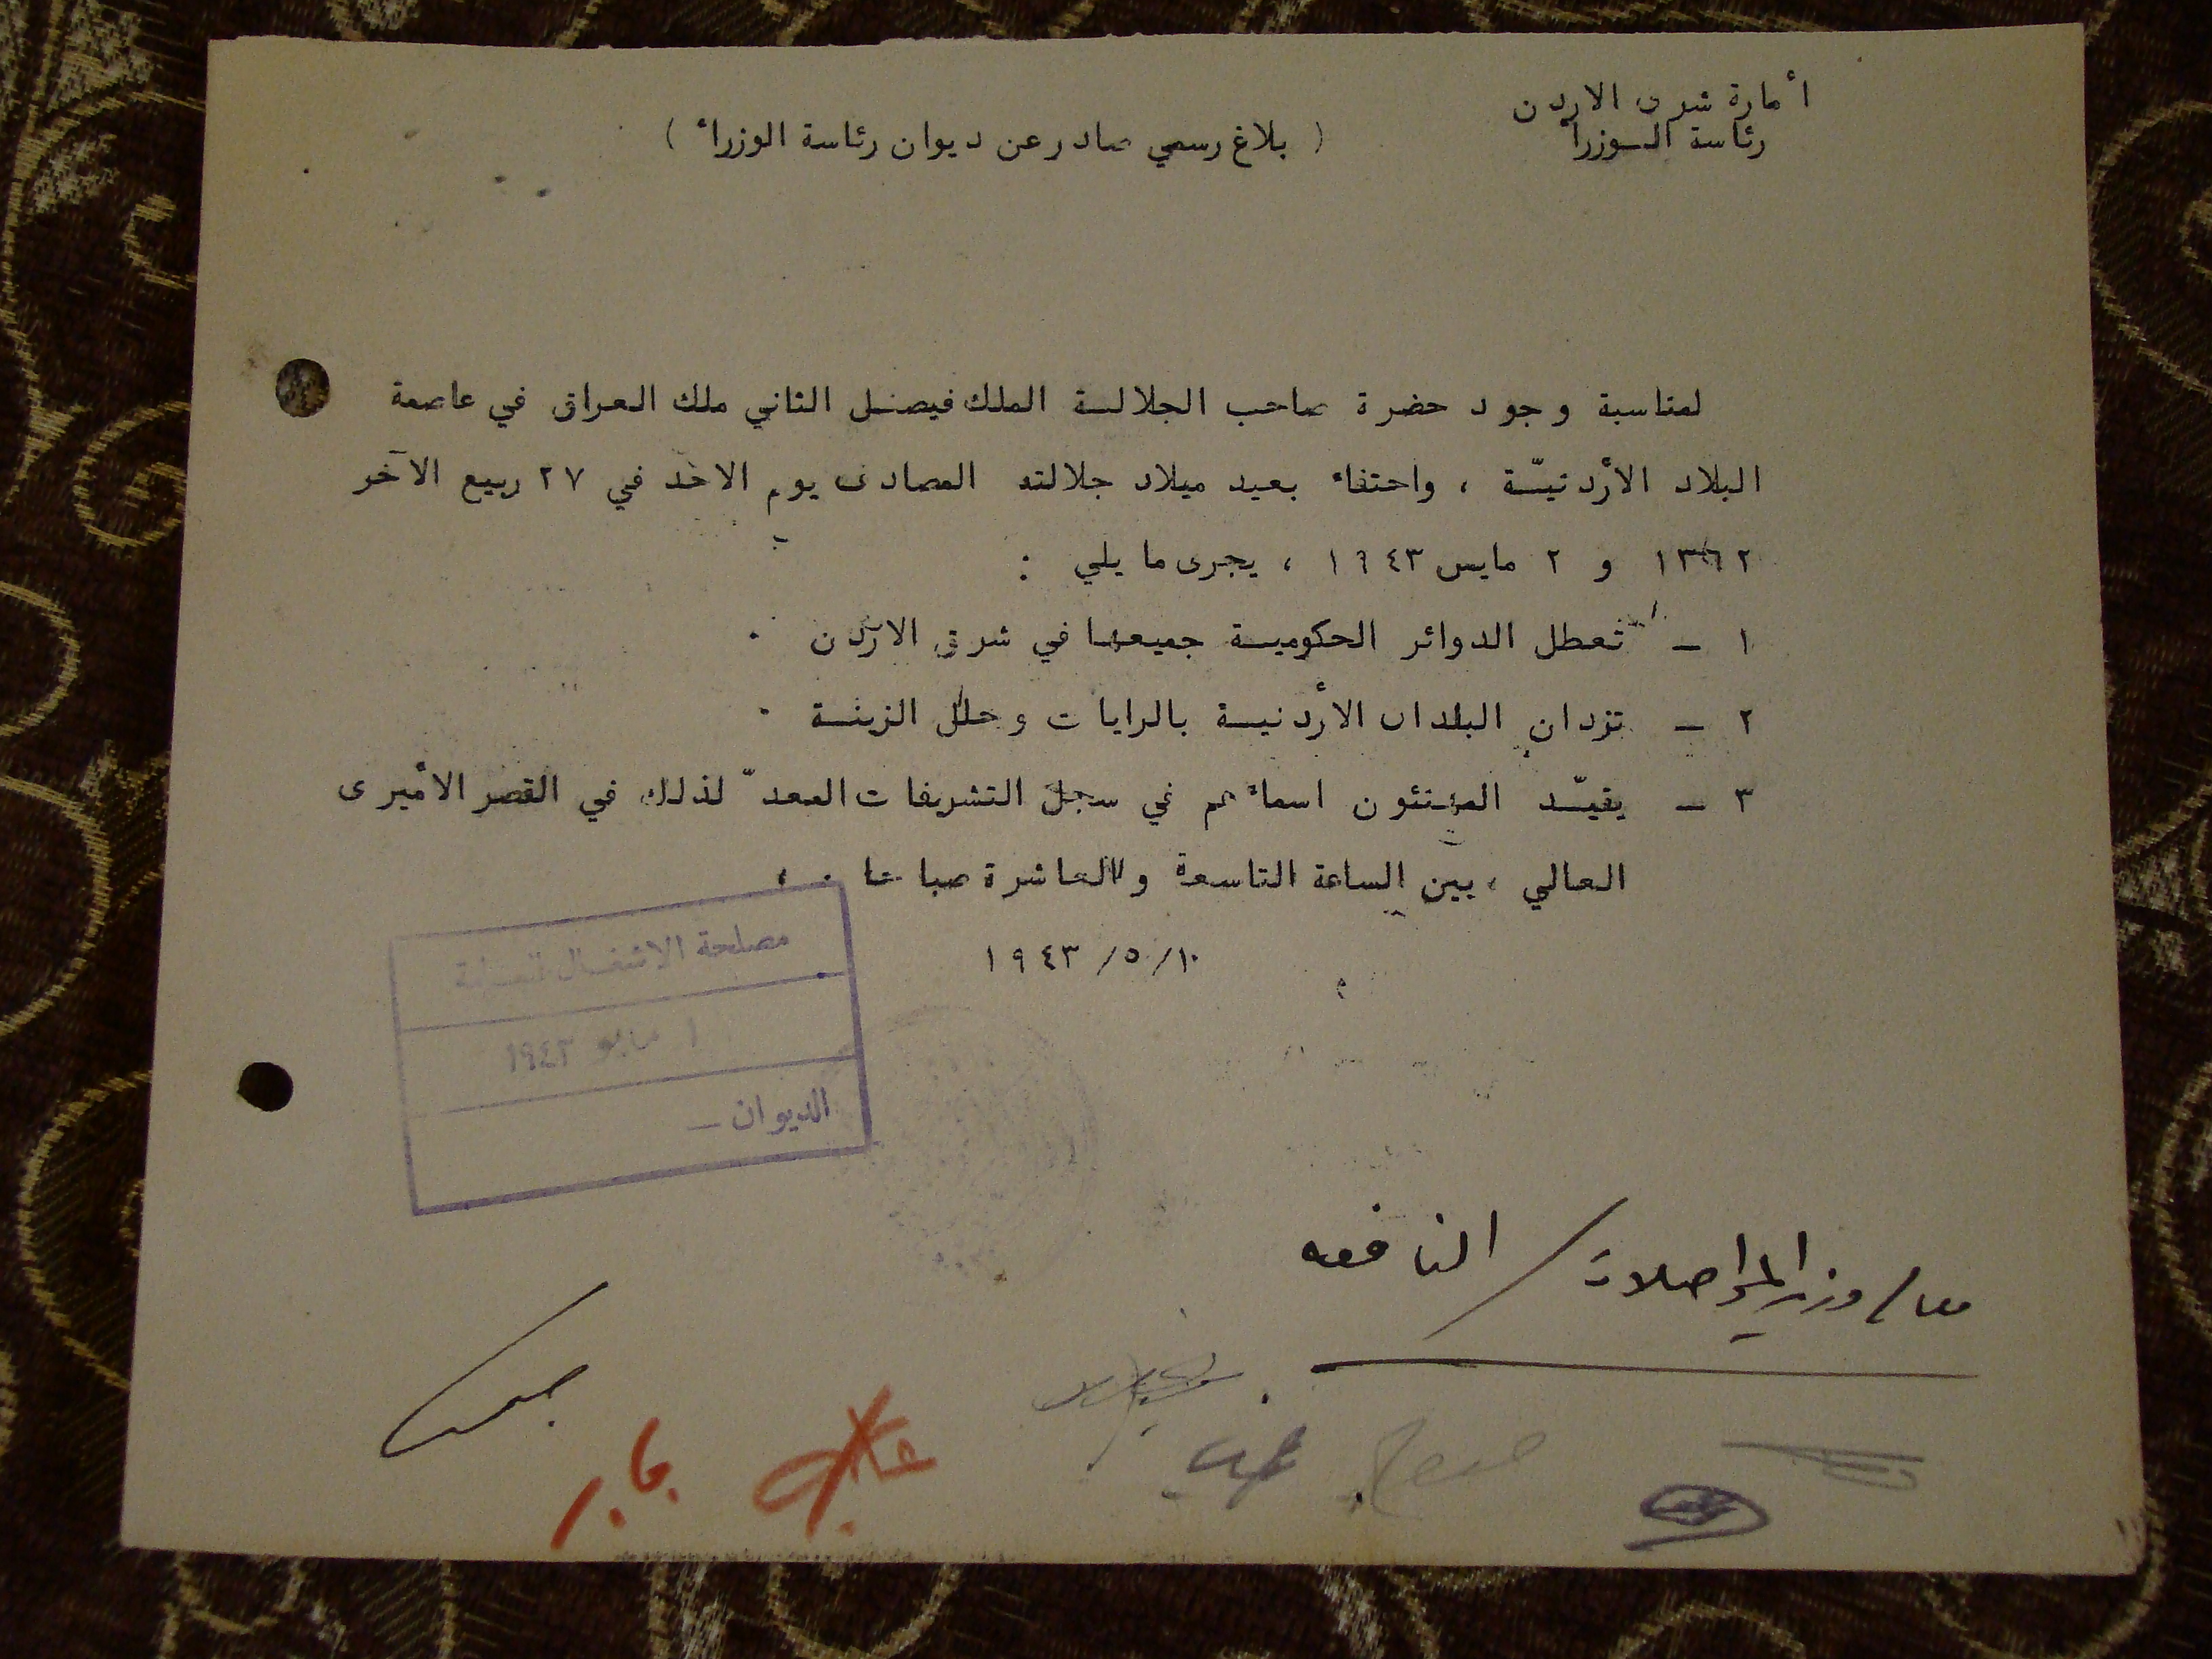 أمارة شرق الاردن
رئاسة الـوزراء
( بلاغ رسمي صادر عن ديوان رئاسة الوزراء )
لمناسبة وجود حضرة صاحب الجلالـة الملك فيصـل الثاني ملك العراق في عاصمة
البلاد الأردنيّـة ، واحتفاء بعيد ميلاد جلالته المصادف يوم الاحد في ٢٧ ربيع الآخر
١٣٦٢ و ٢ مايس ١٩٤٣ ، يجرى ما يلي :
١ ـ تعطل الدوائر الحكوميـة جميعهـا في شرق الاردن ٠
٢ ـ تزدان البلدان الأردنيـة بالرايات وحلل الزينـة ٠
٣ ـ يقيـّد المهنئون اسماءهم في سجل التشريفات المعدّ لذلك في القصر الأميرى
العالي ، بين الساعة التاسعة والعاشرة صباحا ٠ ،
١٠/٥/١٩٤٣
مصلحة الاشغال
١ مايو ١٩٤٣
الديوان ـ
معالي وزير المواصلات / النافعه
جابر